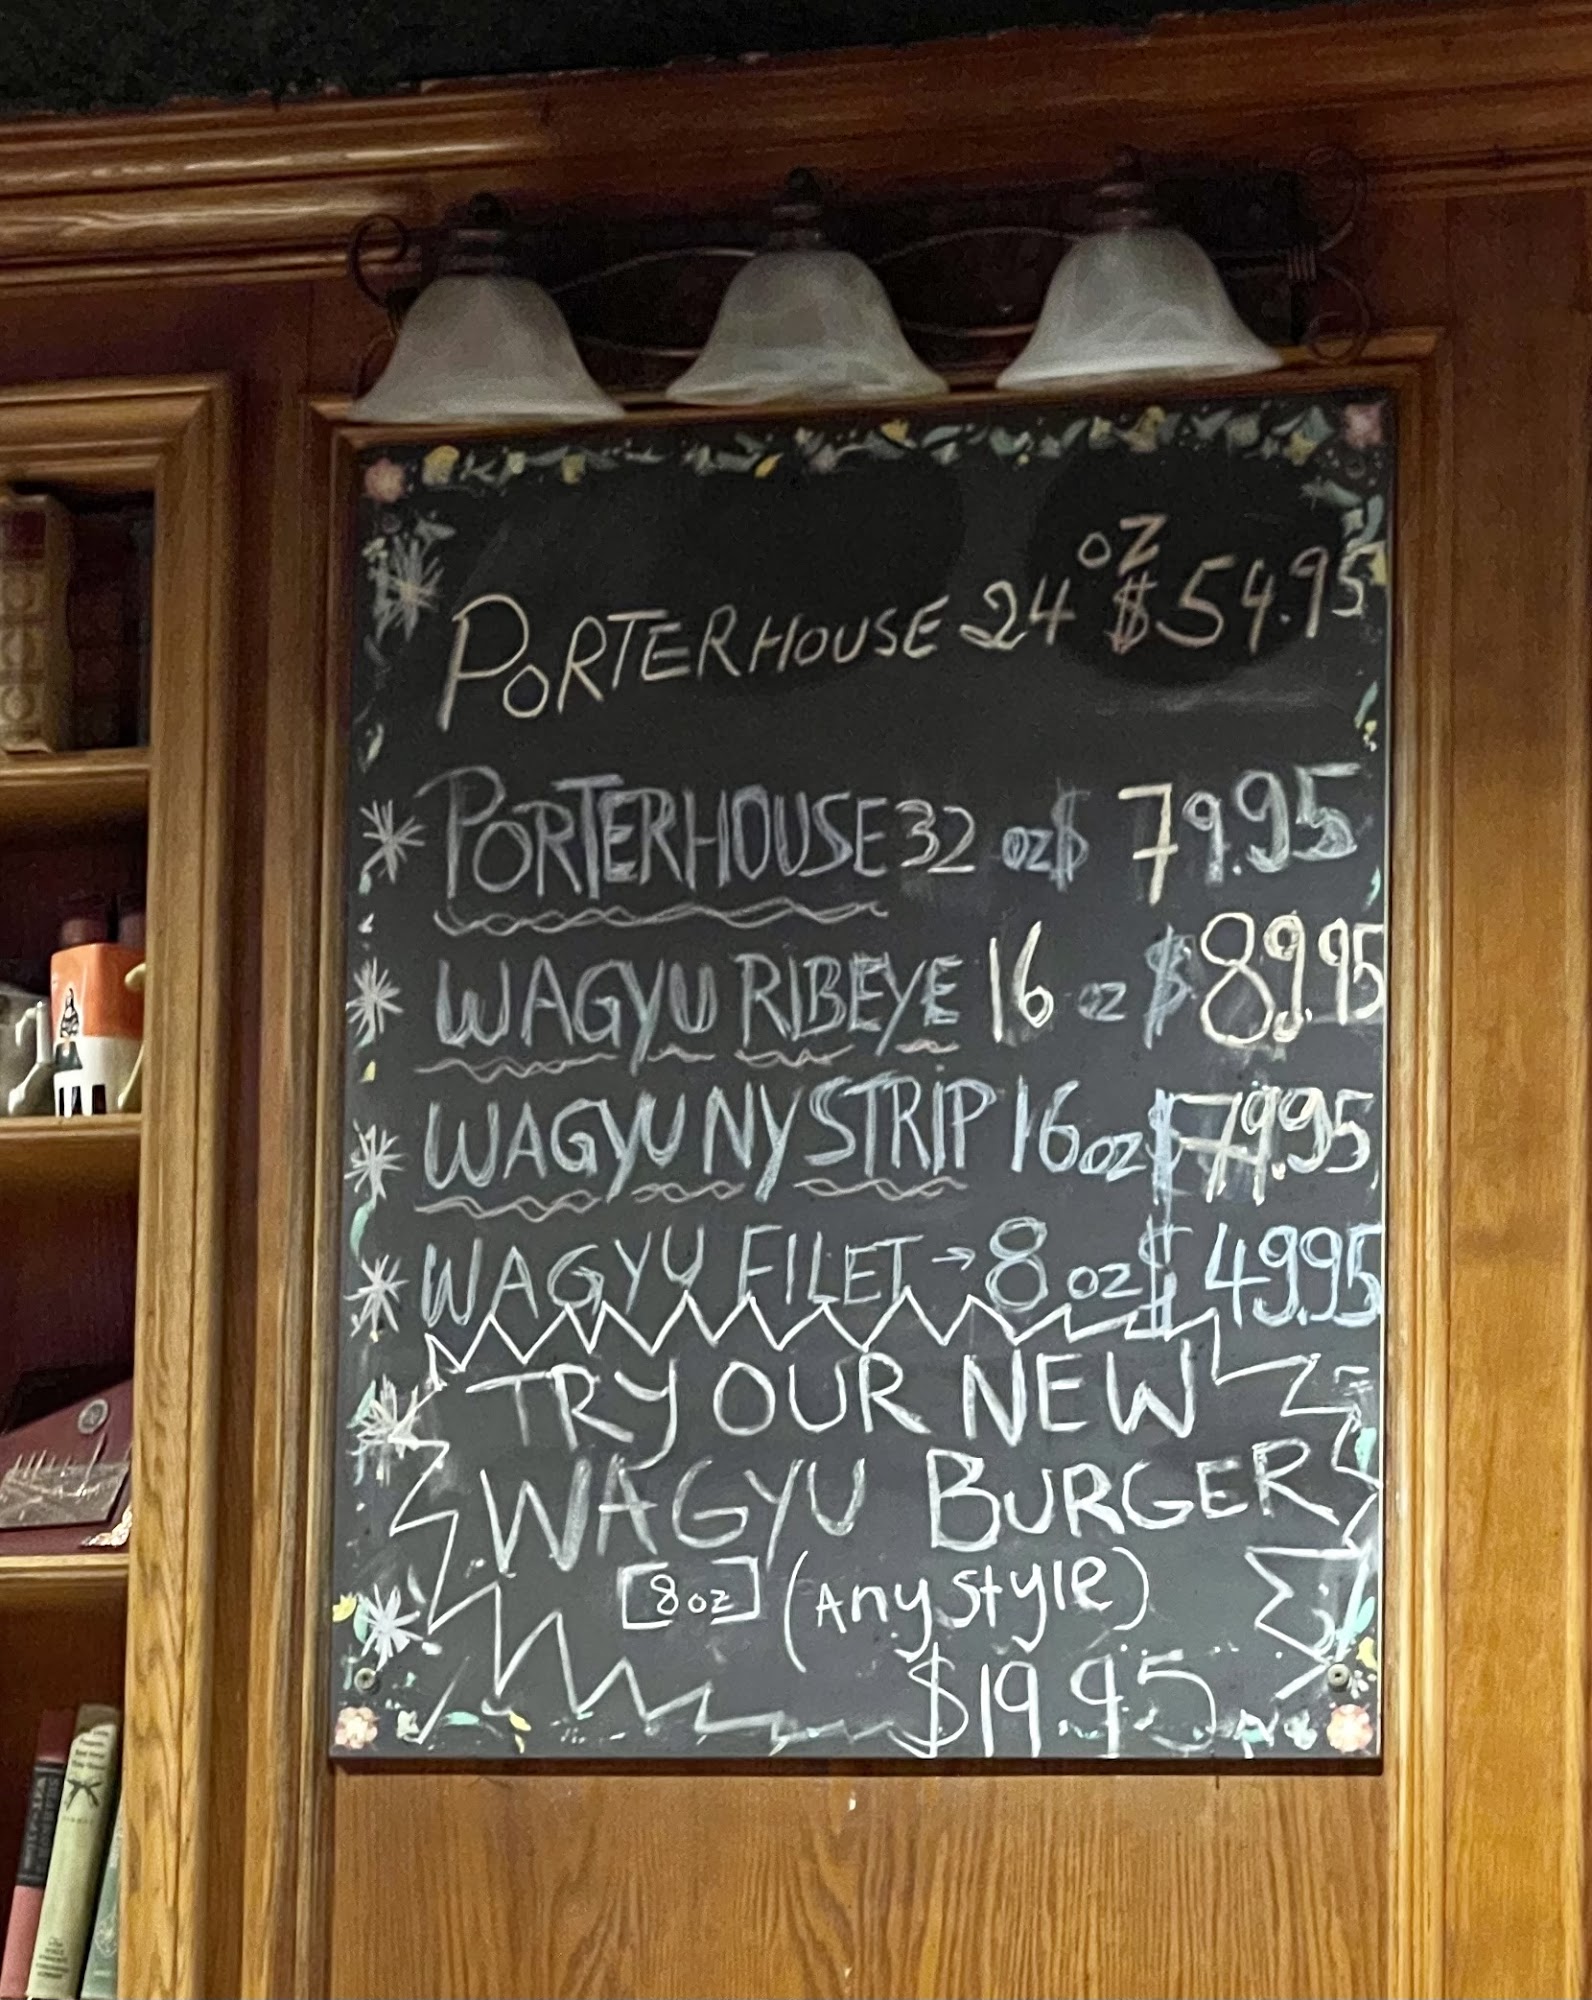 PORTERHOUSE 24 OZ $54.95
PORTERHOUSE 32 OZ $ 79.95
WAGYU RIBEYE 16 OZ $89.95
WAGYU NY STRIP 16 OZ $79.95
WAGYU FILET → 8 OZ $ 49.95
TRY OUR NEW
WAGYU BURGER
8 oz (Any Style)
$19.95